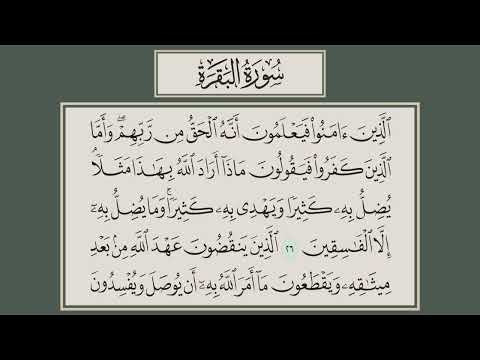 سُورَةُ البَقَرَةِ
الَّذِينَ ءَامَنُوا۟ فَيَعْلَمُونَ أَنَّهُ الْحَقُّ مِن رَّبِّهِمْ ۖ وَأَمَّا
الَّذِينَ كَفَرُوا۟ فَيَقُولُونَ مَاذَآ أَرَادَ اللَّهُ بِهَٰذَا مَثَلًا ۘ
يُضِلُّ بِهِۦ كَثِيرًا وَيَهْدِى بِهِۦ كَثِيرًا ۚ وَمَا يُضِلُّ بِهِۦٓ
إِلَّا الْفَٰسِقِينَ ٢٦ الَّذِينَ يَنقُضُونَ عَهْدَ اللَّهِ مِنۢ بَعْدِ
مِيثَٰقِهِۦ وَيَقْطَعُونَ مَآ أَمَرَ اللَّهُ بِهِۦٓ أَن يُوصَلَ وَيُفْسِدُونَ